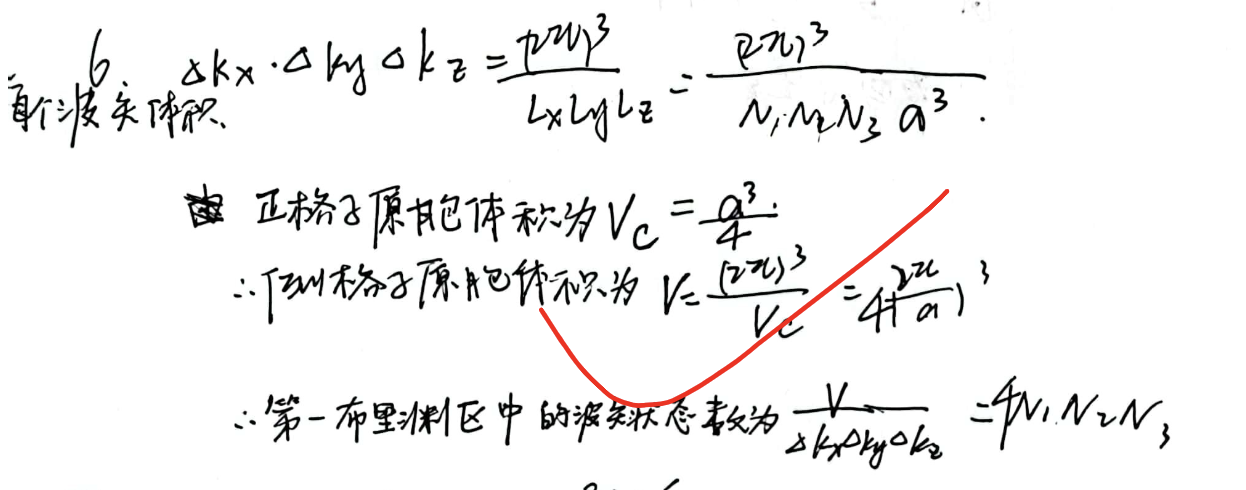 6 Δkx·Δky Δkz = (2π)³/LxLyLz = (2π)³/N₁N₂N₃a³.
每个波矢体积
正格子原胞体积为 Vc = a³/4.
∴倒格子原胞体积为 V = (2π)³/Vc = 4(2π/a)³
∴第一布里渊区中的波矢状态数为 V/ΔkxΔkyΔkz = 4N₁N₂N₃